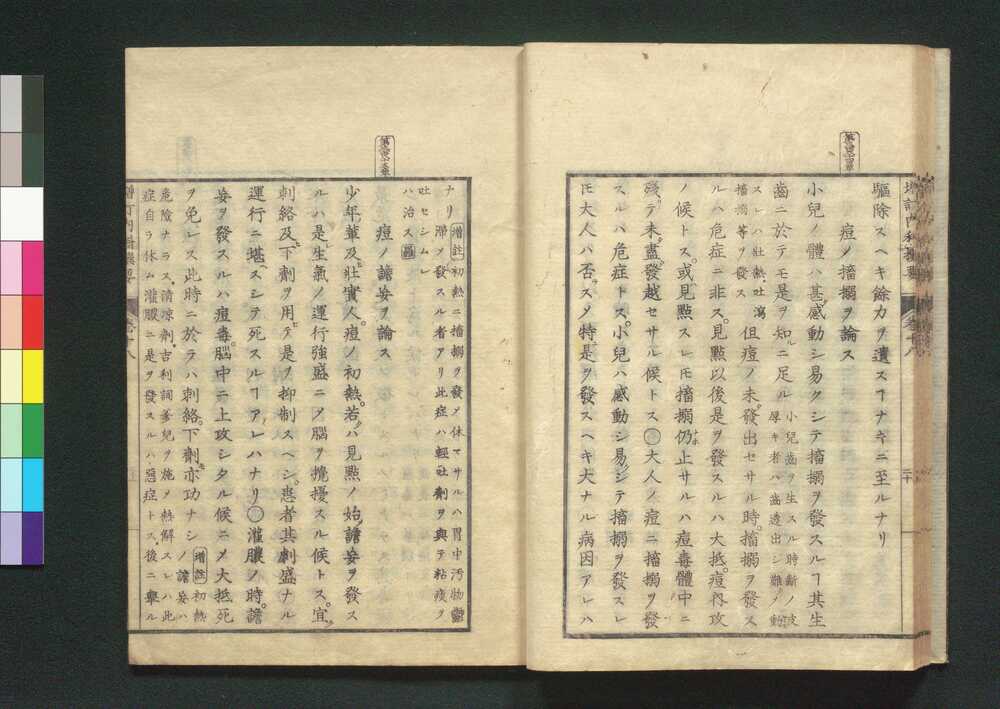 驅除スヘキ餘力ヲ遺スヿナキニ至ルナリ
痘ノ搐搦ヲ論ス
小兒ノ體ハ甚感動シ易クシテ搐搦ヲ發スルヿ其生
齒ニ於テモ是ヲ知ルニ足ル 小兒齒ヲ生スル時齗ノ皮厚キ者ハ齒透出シ難ノ動
スレハ壯熱吐瀉搐搦等ヲ發ス 但痘ノ未發出セサル時搐搦ヲ發ス
ルハ危症ニ非ス見點以後是ヲ發スルハ大抵痘內攻
ノ候トス或見點スレモ搐搦仍止サルハ痘毒體中ニ
殘テ未盡發越セサル候トス〇大人ノ痘ニ搐搦ヲ發
スルハ危症トス小兒ハ感動シ易シテ搐搦ヲ發スレ
𪜈大人ハ否ラス乄特是ヲ發スヘキ大ナル病因アレハ
ナリ 增註 初熱ニ搐搦ヲ發乄休マサルハ胃中汚物鬱
滯ノ發スル者アリ此症ハ輕吐劑ヲ與テ粘痰ヲ
吐セシムレハ治ス
痘ノ譫妄ヲ論ス
少年輩及壯實人痘ノ初熱若ハ見點ノ始譫妄ヲ發ス
ルハ是生氣ノ運行強盛ニ乄腦ヲ攪擾スル候トス宜
刺絡及下劑ヲ用テ是ヲ抑制スヘシ患者其劇盛ナル
運行ニ堪スシテ死スルヿアレハナリ〇灌膿ノ時譫
妄ヲ發スルハ痘毒腦中ニ上攻シタル候ニ乄大抵死
ヲ免レス此時ニ於テハ刺絡下劑亦功ナシ 增註 初熱ノ譫妄ハ
危險ナラス清凉劑吉利詞爹兒ヲ施乄熱解スレハ此
症自ラ休ム灌膿ニ是ヲ發スルハ惡症トス後ニ舉ル